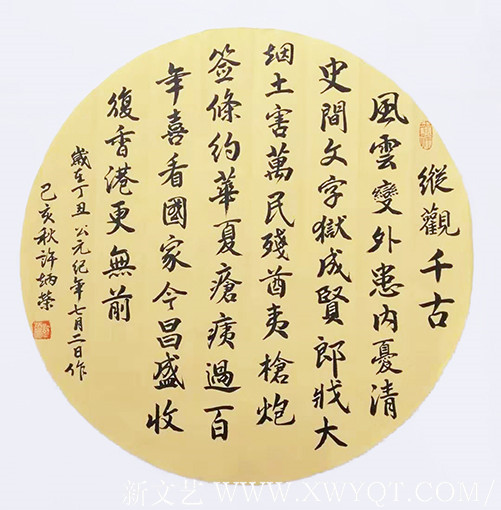 縱觀千古
風雲變外患内憂清
史間文字獄成賢郎戕大
烟土害萬民殘酋夷槍炮
签條約華夏瘡痍過百
年喜看國家今昌盛收
復香港更無前
歲在丁丑公元紀年七月二日作
己亥秋許炳榮
新文艺 WWW.XWYQT.COM/